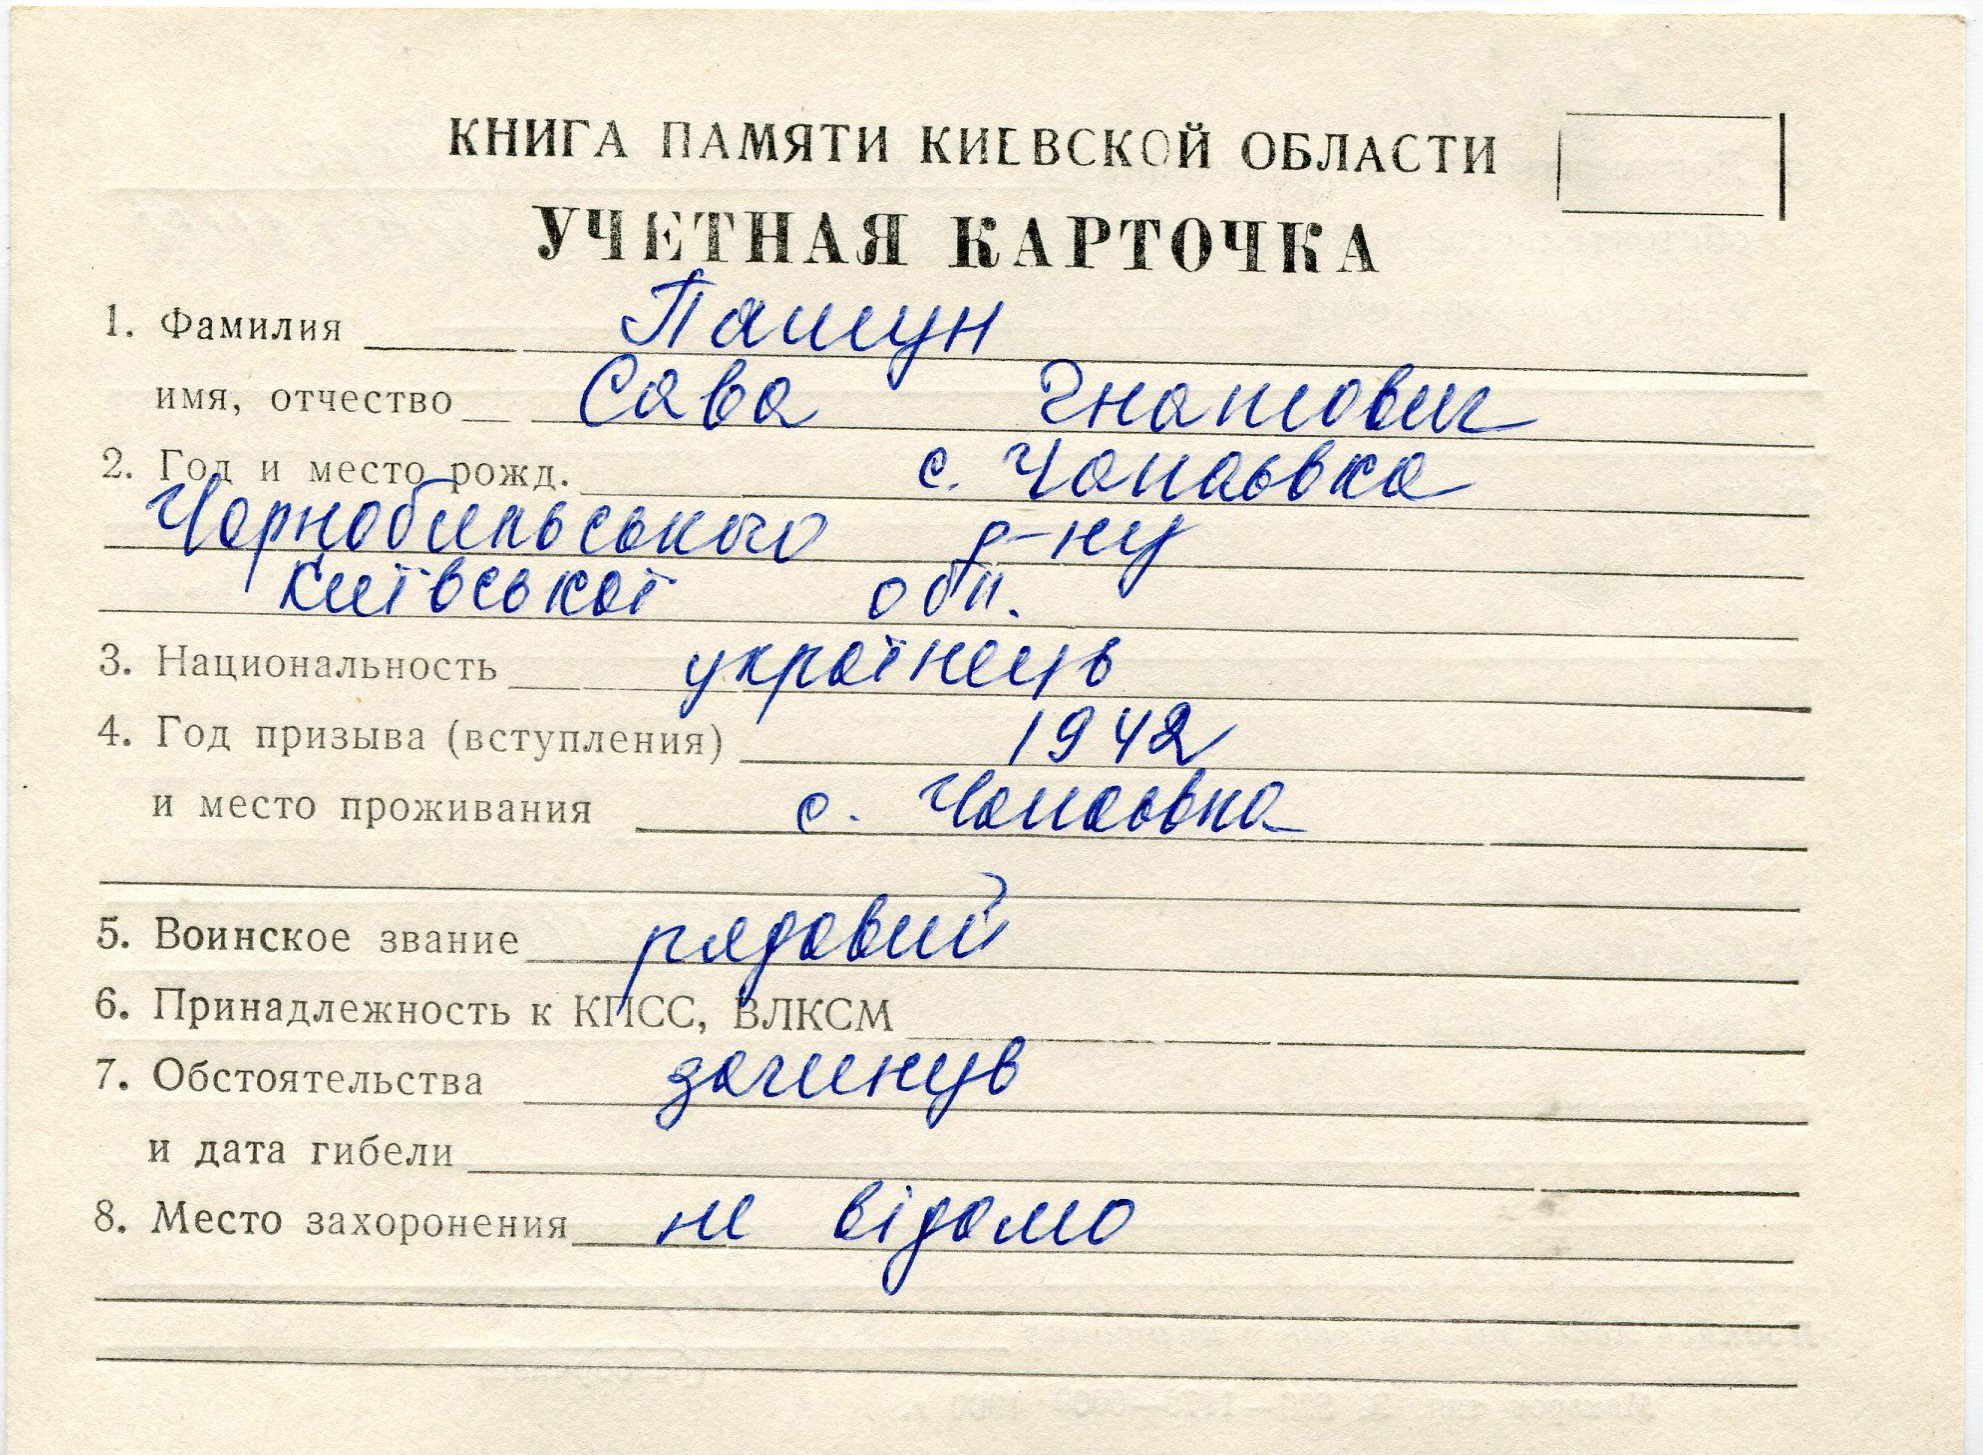 КНИГА ПАМЯТИ КИЕВСКОЙ ОБЛАСТИ
УЧЕТНАЯ КАРТОЧКА
1. Фамилия Пашун
имя, отчество Сава Гнатович
2. Год и место рожд. с. Чапаєвка
Чорнобильського р-ну
Київської обл.
3. Национальность українець
4. Год призыва (вступления) 1942
и место проживания с. Чапаєвка
5. Воинское звание рядовий
6. Принадлежность к КПСС, ВЛКСМ
7. Обстоятельства загинув
и дата гибели
8. Место захоронения не відомо